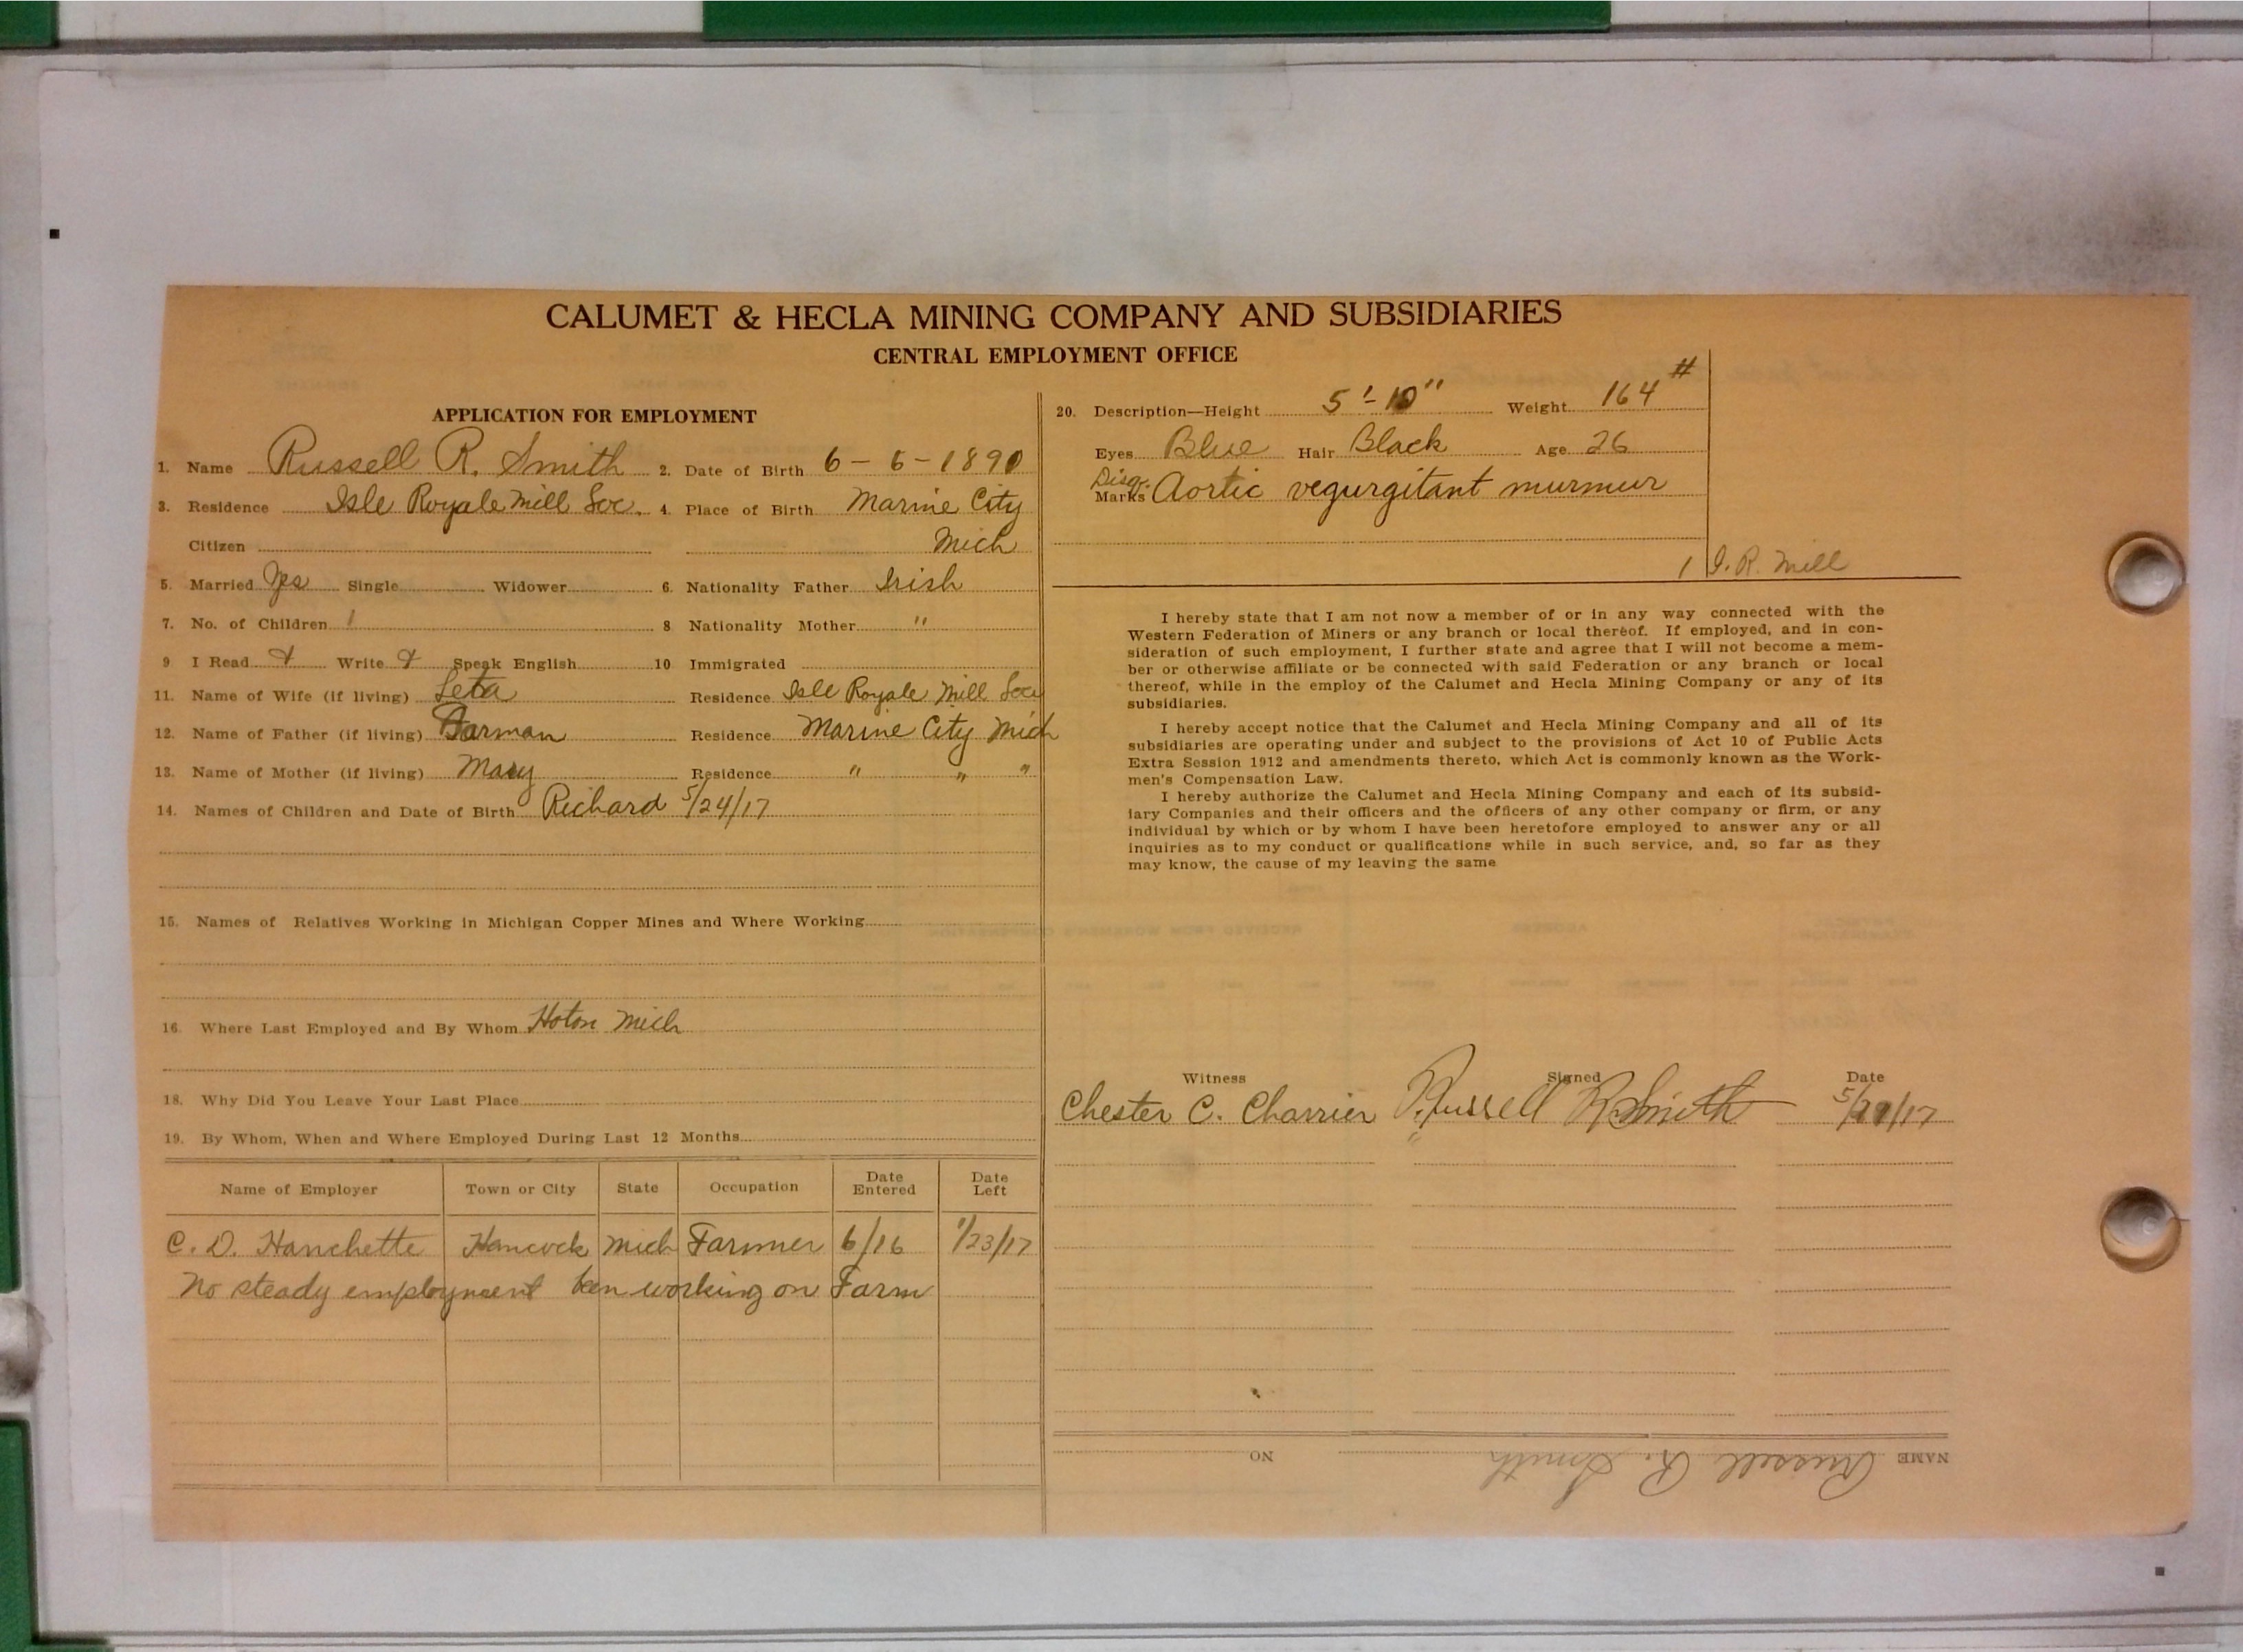 CALUMET & HECLA MINING COMPANY AND SUBSIDIARIES
CENTRAL EMPLOYMENT OFFICE
APPLICATION FOR EMPLOYMENT
1. Name Russell R. Smith 2. Date of Birth 6-6-1890
3. Residence Isle Royale Mill Loc. 4. Place of Birth Marine City
Citizen Mich
5. Married Yes Single Widower 6. Nationality Father Irish
7. No. of Children 1 8 Nationality Mother "
9 I Read Write Speak English 10 Immigrated
11. Name of Wife (if living) Leta Residence Isle Royale Mill Loc
12. Name of Father (if living) Residence Marine City Mich
13. Name of Mother (if living) Mary Residence " " "
14. Names of Children and Date of Birth Richard 5/24/17
15. Names of Relatives Working in Michigan Copper Mines and Where Working
16. Where Last Employed and By Whom Hoton Mich
18. Why Did You Leave Your Last Place
19. By Whom, When and Where Employed During Last 12 Months
Name of Employer Town or City State Occupation Date Entered Date Left
C. D. Hanchette Hancock Mich Farmer 6/16 1/23/17
No steady employment ben working on Farm
20. Description—Height 5'-10" Weight 164#
Eyes Blue Hair Black Age 26
Disq.
Marks Aortic vegurgitant murmur
1 I. R. Mill
I hereby state that I am not now a member of or in any way connected with the
Western Federation of Miners or any branch or local thereof. If employed, and in con-
sideration of such employment, I further state and agree that I will not become a mem-
ber or otherwise affiliate or be connected with said Federation or any branch or local
thereof, while in the employ of the Calumet and Hecla Mining Company or any of its
subsidiaries.
I hereby accept notice that the Calumet and Hecla Mining Company and all of its
subsidiaries are operating under and subject to the provisions of Act 10 of Public Acts
Extra Session 1912 and amendments thereto, which Act is commonly known as the Work-
men's Compensation Law.
I hereby authorize the Calumet and Hecla Mining Company and each of its subsid-
iary Companies and their officers and the officers of any other company or firm, or any
individual by which or by whom I have been heretofore employed to answer any or all
inquiries as to my conduct or qualifications while in such service, and, so far as they
may know, the cause of my leaving the same
Witness Signed Date
Chester C. Charrier Russell R Smith
NAME Russell R. Smith NO